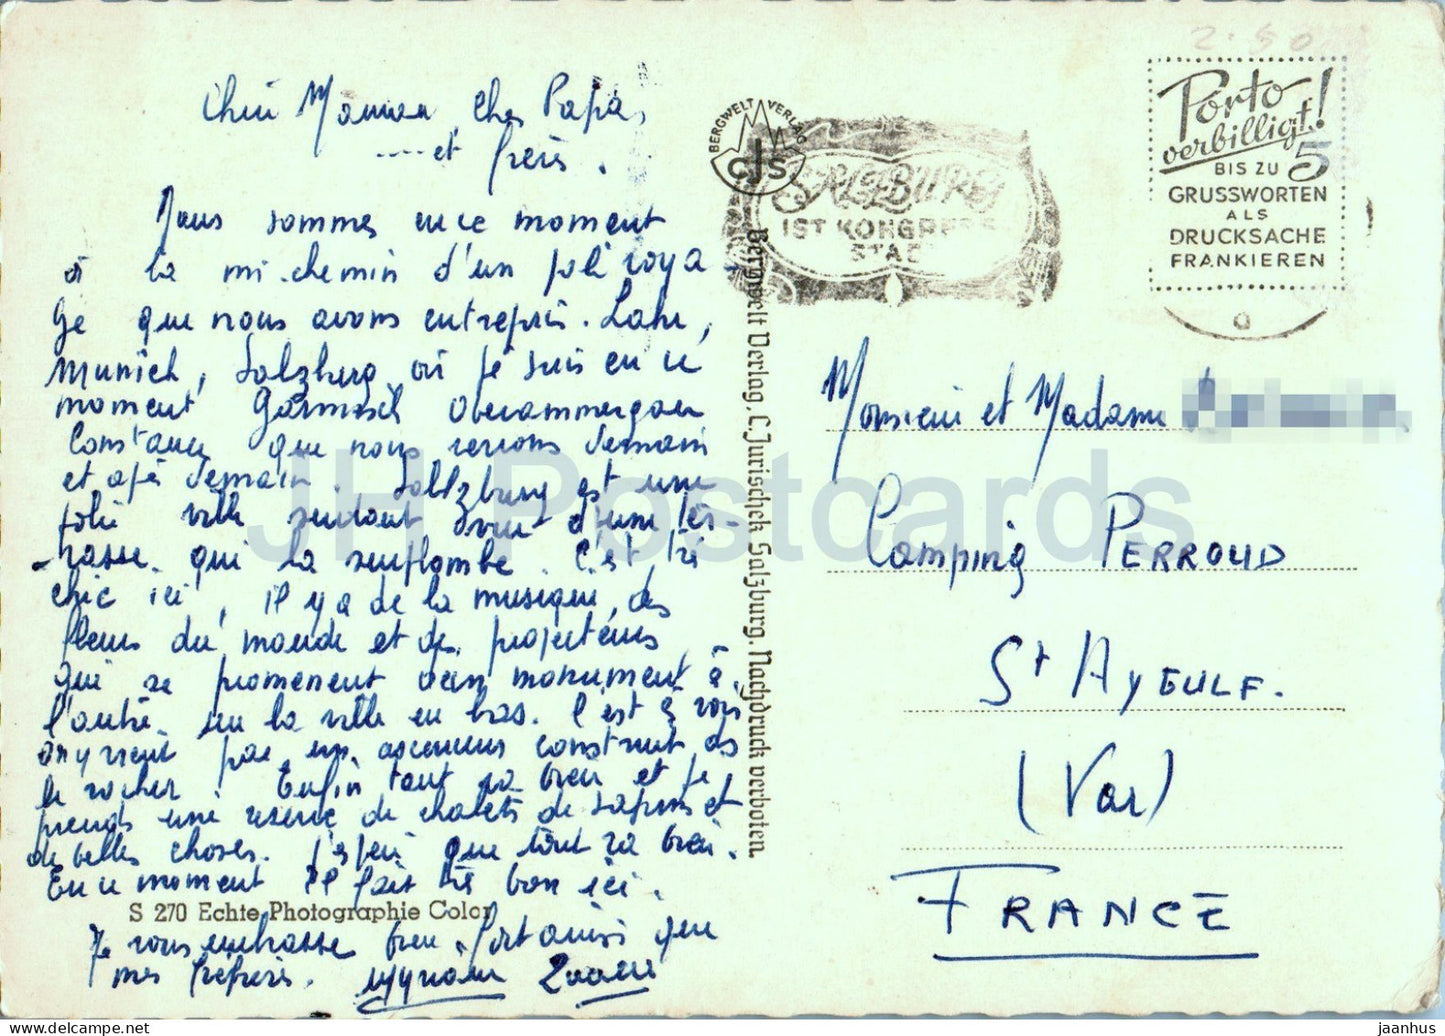 Cher Maman, Cher Papa,
.....et frères.
Nous sommes en ce moment
à la mi-chemin d'un joli voya-
ge que nous avons entrepris. Lahr,
Munich, Salzburg où je suis en ce
moment Garmisch Oberammergau
Constance que nous verrons demain
et après demain. Saltzburg est une
jolie ville surtout vue d'une ter-
rasse qui la surplombe. C'est très
chic ici, il y a de la musique, des
fleurs du monde et des projecteurs
qui se promènent d'un monument à
l'autre sur la ville en bas. C'est à vous
on y vient par un ascenseur construit ds
le rocher! Enfin tout va bien et je
prends une réserve de chalets de sapins et
de belles choses. J'espère que tout va bien.
En ce moment il fait très bon ici.
S 270 Echte Photographie Color
Je vous embrasse bien fort ainsi que
mes frères.
BERGWELT VERLAG
CJS
SALZBURG
IST KONGRESS
STADT
Bergwelt Verlag, C. Jurischek Salzburg. Nachdruck verboten.
2.50
Porto
verbilligt!
BIS ZU 5
GRUSSWORTEN
ALS
DRUCKSACHE
FRANKIEREN
Monsieur et Madame
Camping PERROUD
St AYEULF.
(Var)
FRANCE
JH Postcards
delcampe.net
jaanhus